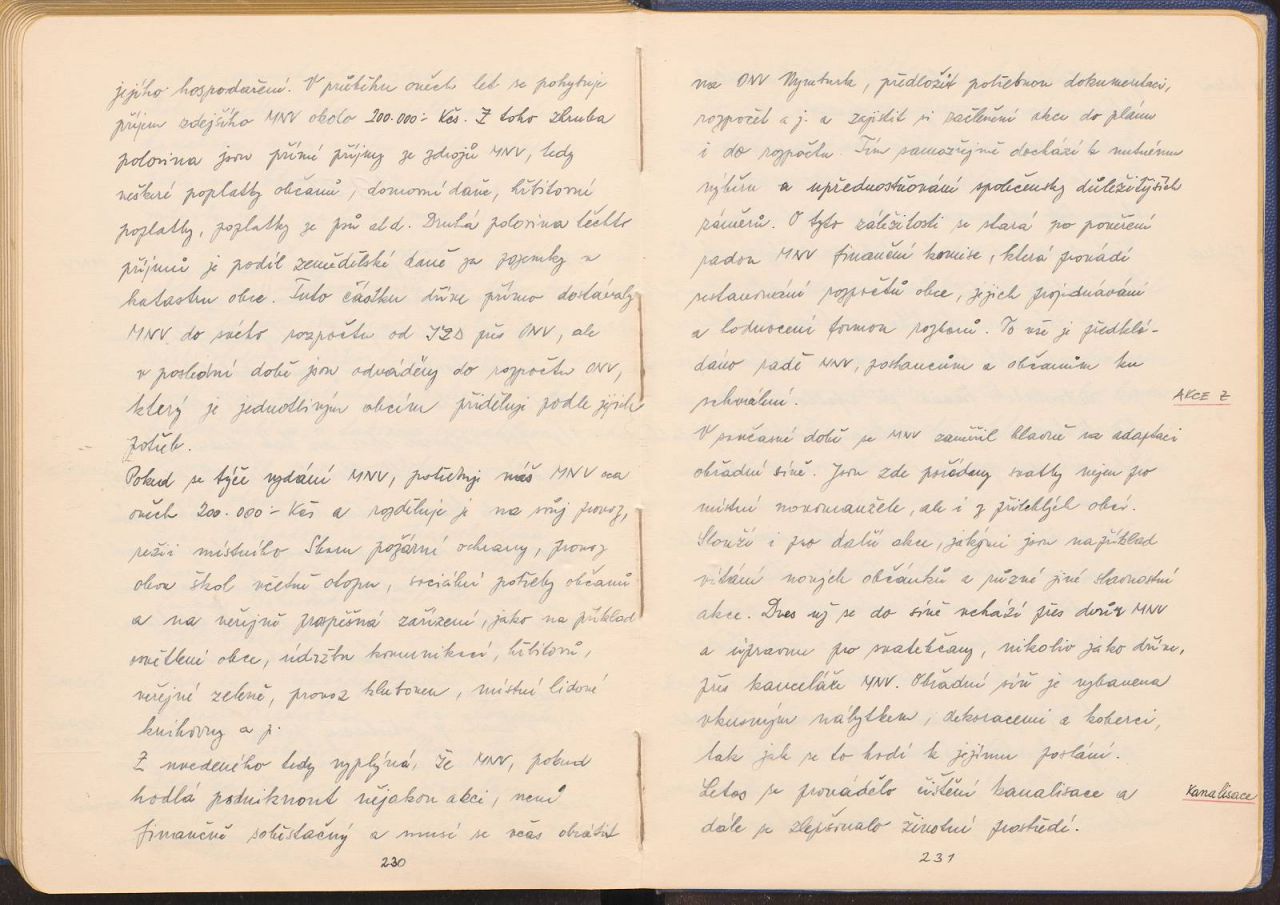 jejího hospodaření. V průběhu oněch let se pohybuje
příjem zdejšího MNV okolo 200.000:- Kčs. Z toho zhruba
polovina jsou přímé příjmy ze zdrojů MNV, tedy
veškeré poplatky občanů, domovní daně, hřbitovní
poplatky, poplatky ze psů atd. Druhá polovina těchto
příjmů je podíl zemědělské daně za pozemky v
katastru obce. Tuto částku dříve přímo dostávaly
MNV do svého rozpočtu od JZD přes ONV, ale
v poslední době jsou odváděny do rozpočtu ONV,
který je jednotlivým obcím přiděluje podle jejich
potřeb.
Pokud se týče vydání MNV, potřebuje náš MNV cca
oněch 200.000:- Kčs a rozděluje je na svůj provoz,
režii místního Sboru požární ochrany, provoz
obou škol včetně otopu, sociální potřeby občanů
a na veřejně prospěšná zařízení, jako na příklad
osvětlení obce, údržbu komunikací, hřbitovů,
veřejné zeleně, provoz klubovен, místní lidové
knihovny a p.
Z uvedeného tedy vyplývá, že MNV, pokud
hodlá podniknout nějakou akci, není
finančně soběstačný a musí se včas obrátit
230
na ONV Nymburk, předložit potřebnou dokumentaci,
rozpočet a j. a zajistit si začlenění akce do plánu
i do rozpočtu. Tím samozřejmě dochází k nutnému
výběru a upřednostňování společensky důležitějších
záměrů. O tyto záležitosti se stará po pověření
radou MNV finanční komise, která provádí
sestavování rozpočtů obce, jejich projednávání
a hodnocení formou rozborů. To vše je předklá-
dáno radě MNV, poslancům a občanům ku
schválení.
AKCE Z
V současné době se MNV zaměřil hlavně na adaptaci
obřadní síně. Jsou zde pořádány svatby nejen pro
místní novomanžele, ale i z přilehlých obcí.
Slouží i pro další akce, jakými jsou například
vítání nových občánků a různé jiné slavnostní
akce. Dnes už se do síně vchází přes dvůr MNV
a úpravnu pro svatebčany, nikoliv jako dříve,
přes kanceláře MNV. Obřadní síň je vybavena
vkusným nábytkem, dekoracemi a koberci,
tak jak se to hodí k jejímu poslání.
Letos se provádělo čištění kanalisace a
Kanalisace
dále se zlepšovalo životní prostředí.
231